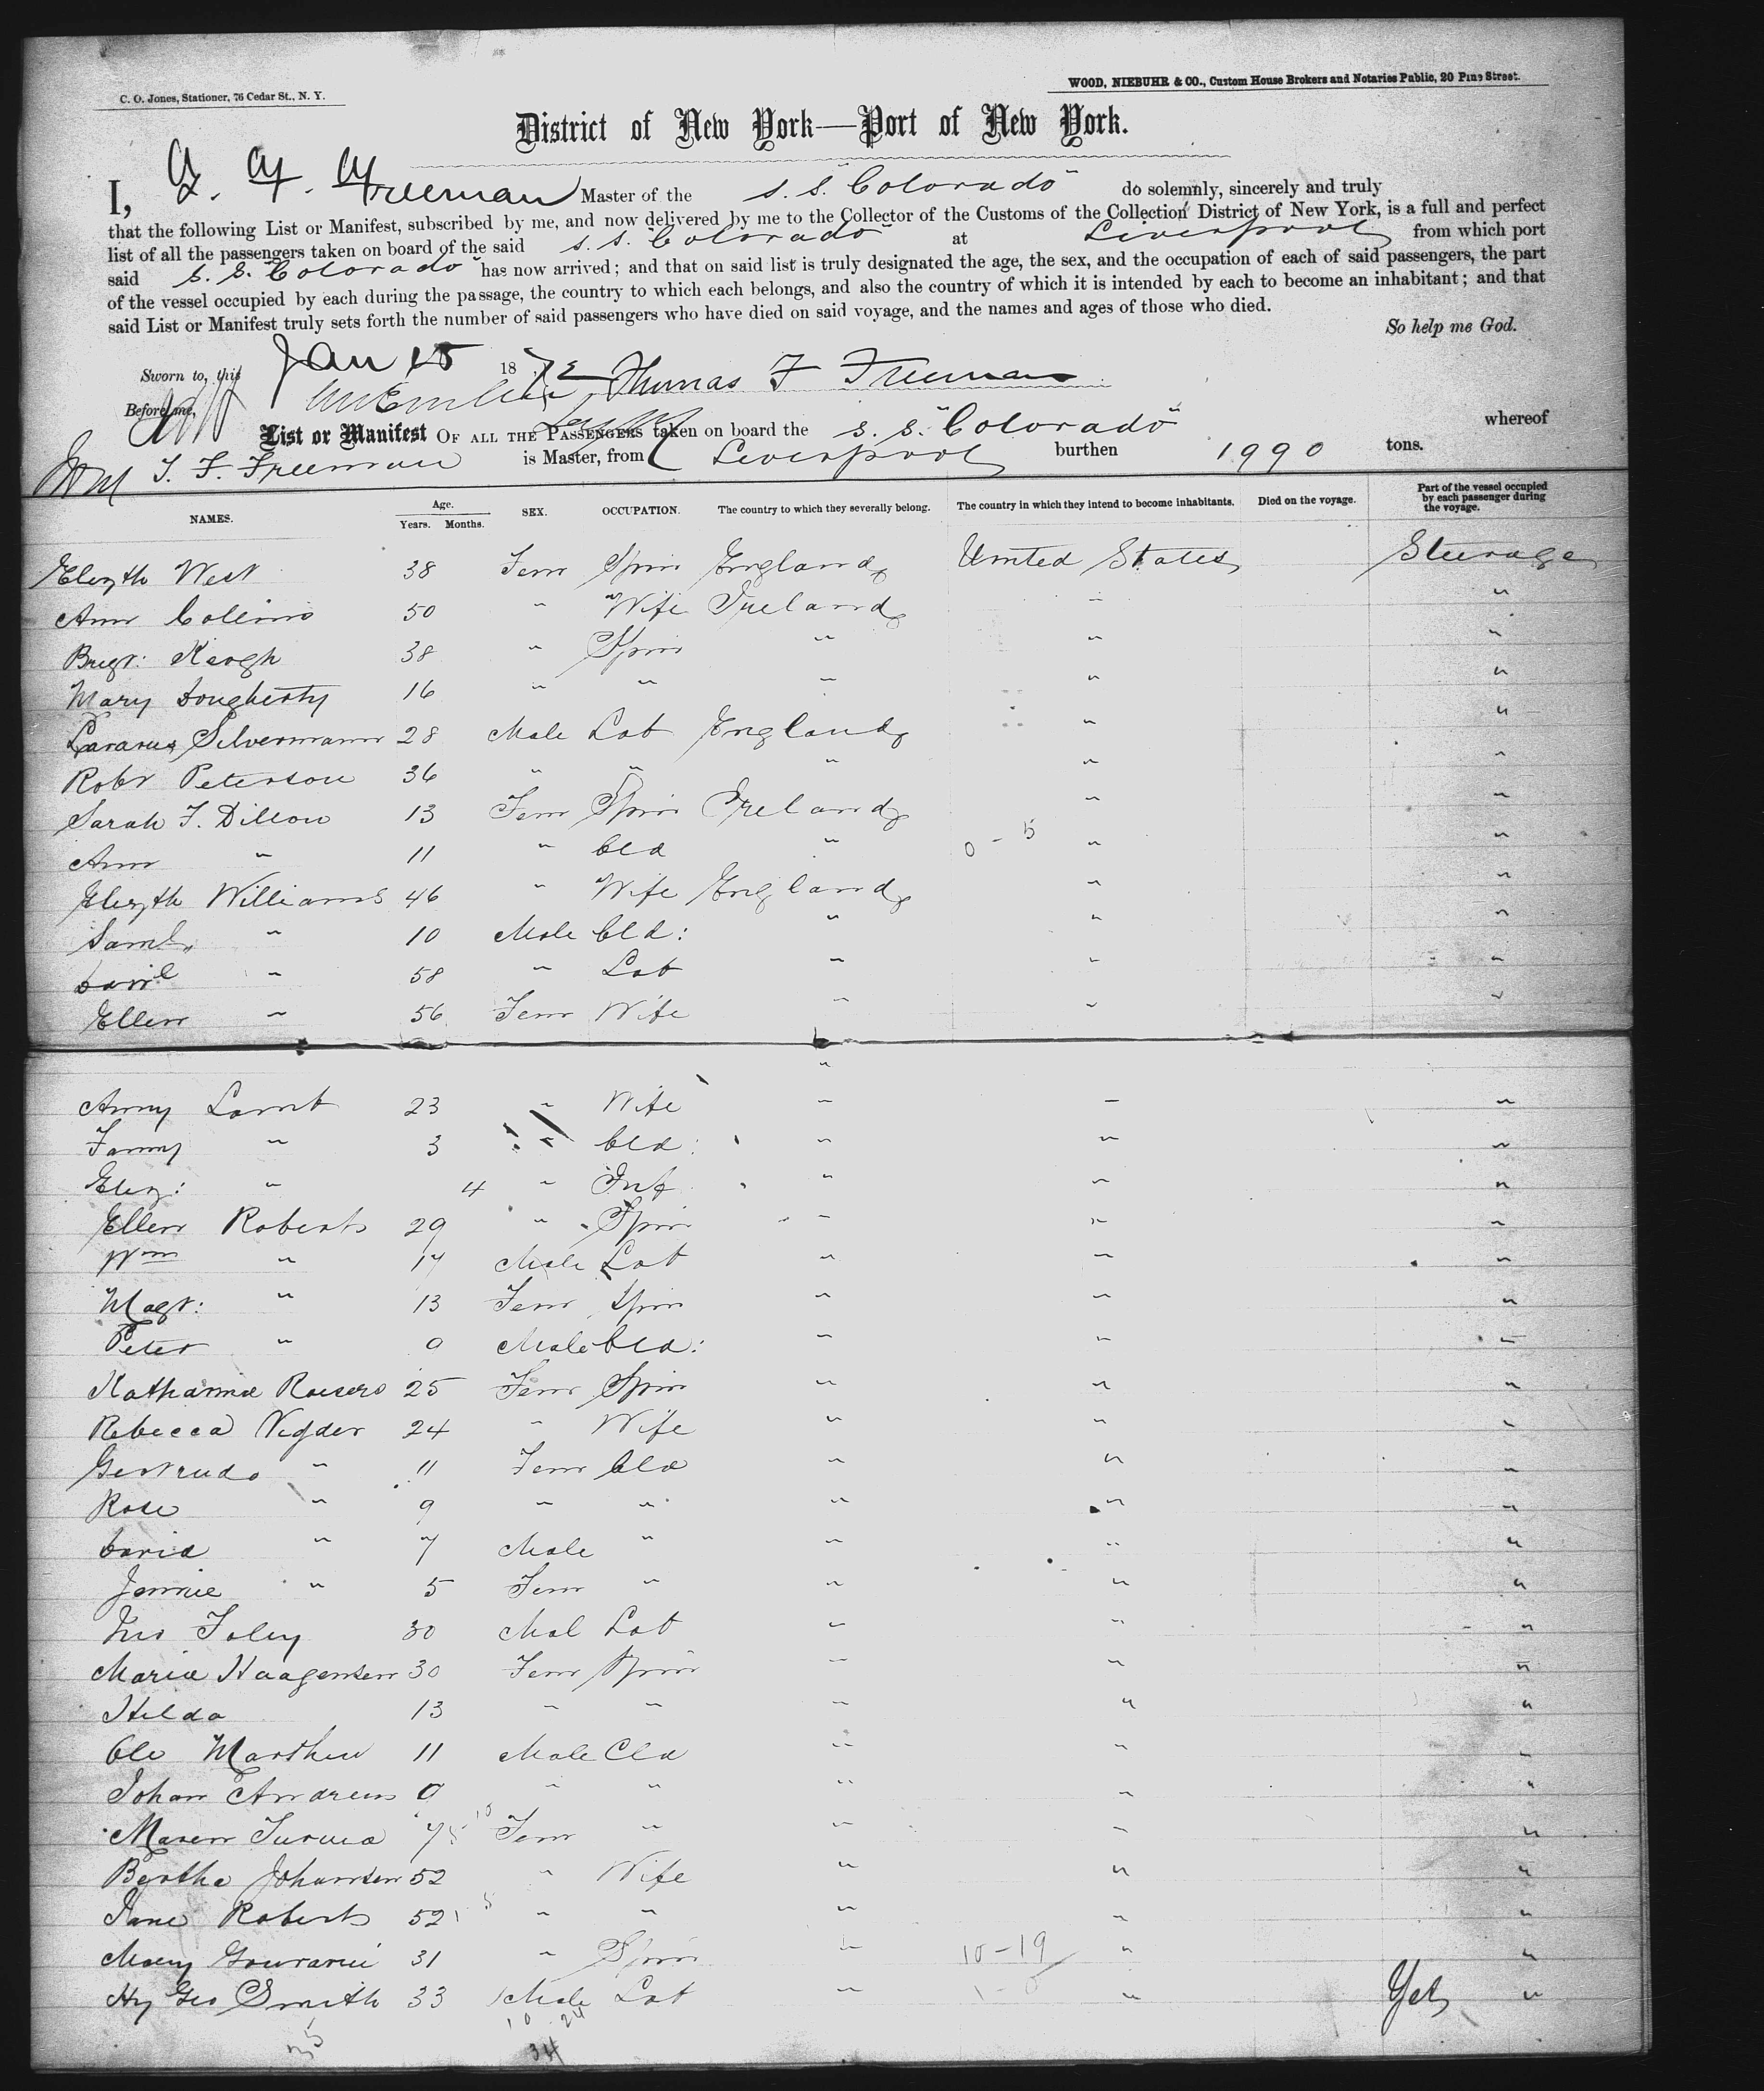 C. O. Jones, Stationer, 76 Cedar St., N. Y.
WOOD, NIEBUHR & CO., Custom House Brokers and Notaries Public, 20 Pine Street.
District of New York—Port of New York.
I, Freeman Master of the S. S. "Colorado" do solemnly, sincerely and truly
that the following List or Manifest, subscribed by me, and now delivered by me to the Collector of the Customs of the Collection District of New York, is a full and perfect
list of all the passengers taken on board of the said S. S. "Colorado" at Liverpool from which port
said S. S. "Colorado" has now arrived; and that on said list is truly designated the age, the sex, and the occupation of each of said passengers, the part
of the vessel occupied by each during the passage, the country to which each belongs, and also the country of which it is intended by each to become an inhabitant; and that
said List or Manifest truly sets forth the number of said passengers who have died on said voyage, and the names and ages of those who died.
So help me God.
Sworn to, this Jan 15 1872 Thomas F Freeman
Before me,
List or Manifest OF ALL THE PASSENGERS taken on board the S. S. "Colorado" whereof
T. F. Freeman is Master, from Liverpool burthen 1990 tons.
NAMES. Age. Years. Months. SEX. OCCUPATION. The country to which they severally belong. The country in which they intend to become inhabitants. Died on the voyage. Part of the vessel occupied by each passenger during the voyage.
Elizth West 38 Fem Spin England United States Steerage
Ann Collins 50 " Wife Ireland " "
Brigt: Keogh 38 " Spin " " "
Mary Dougherty 16 " " " " "
Lazarus Silvermann 28 Male Lab England " "
Robt Peterson 36 " " " " "
Sarah F. Dillon 13 Fem Spin Ireland " "
Ann " 11 " Cld " 0 - 5 " "
Elizth Williams 46 " Wife England " "
Saml " 10 Male Cld: " " "
Danl " 58 " Lab " " "
Ellen " 56 Fem Wife " " "
"
Anny Lamb 23 " Wife " " "
Fanny " 3 " Cld: " " "
Eliz: " 4 " Inf " " "
Ellen Roberts 29 " Spin " " "
Wm " 17 Male Lab " " "
Magt: " 13 Fem Spin " " "
Peter " 9 Male Cld: " " "
Katharina 25 Fem Spin " " "
Rebecca 24 " Wife " " "
Gertrude " 11 Fem Cld " " "
Rose " 9 " " " " "
David " 7 Male " " " "
Jennie " 5 Fem " " " "
Foley 30 Mal Lab " " "
Maria Haagensen 30 Fem Spin " " "
Hilda 13 " " " " "
Ole 11 Male Cld " " "
Johan Andreas 9 " " " " "
Maren 7 Fem " " " "
Bertha Johansen 52 " Wife " " "
Jane Roberts 52 " " " " "
Mary 31 " Spin " 10-19 " "
Hy Geo Smith 33 Male Lab " " "
10 24
35
34